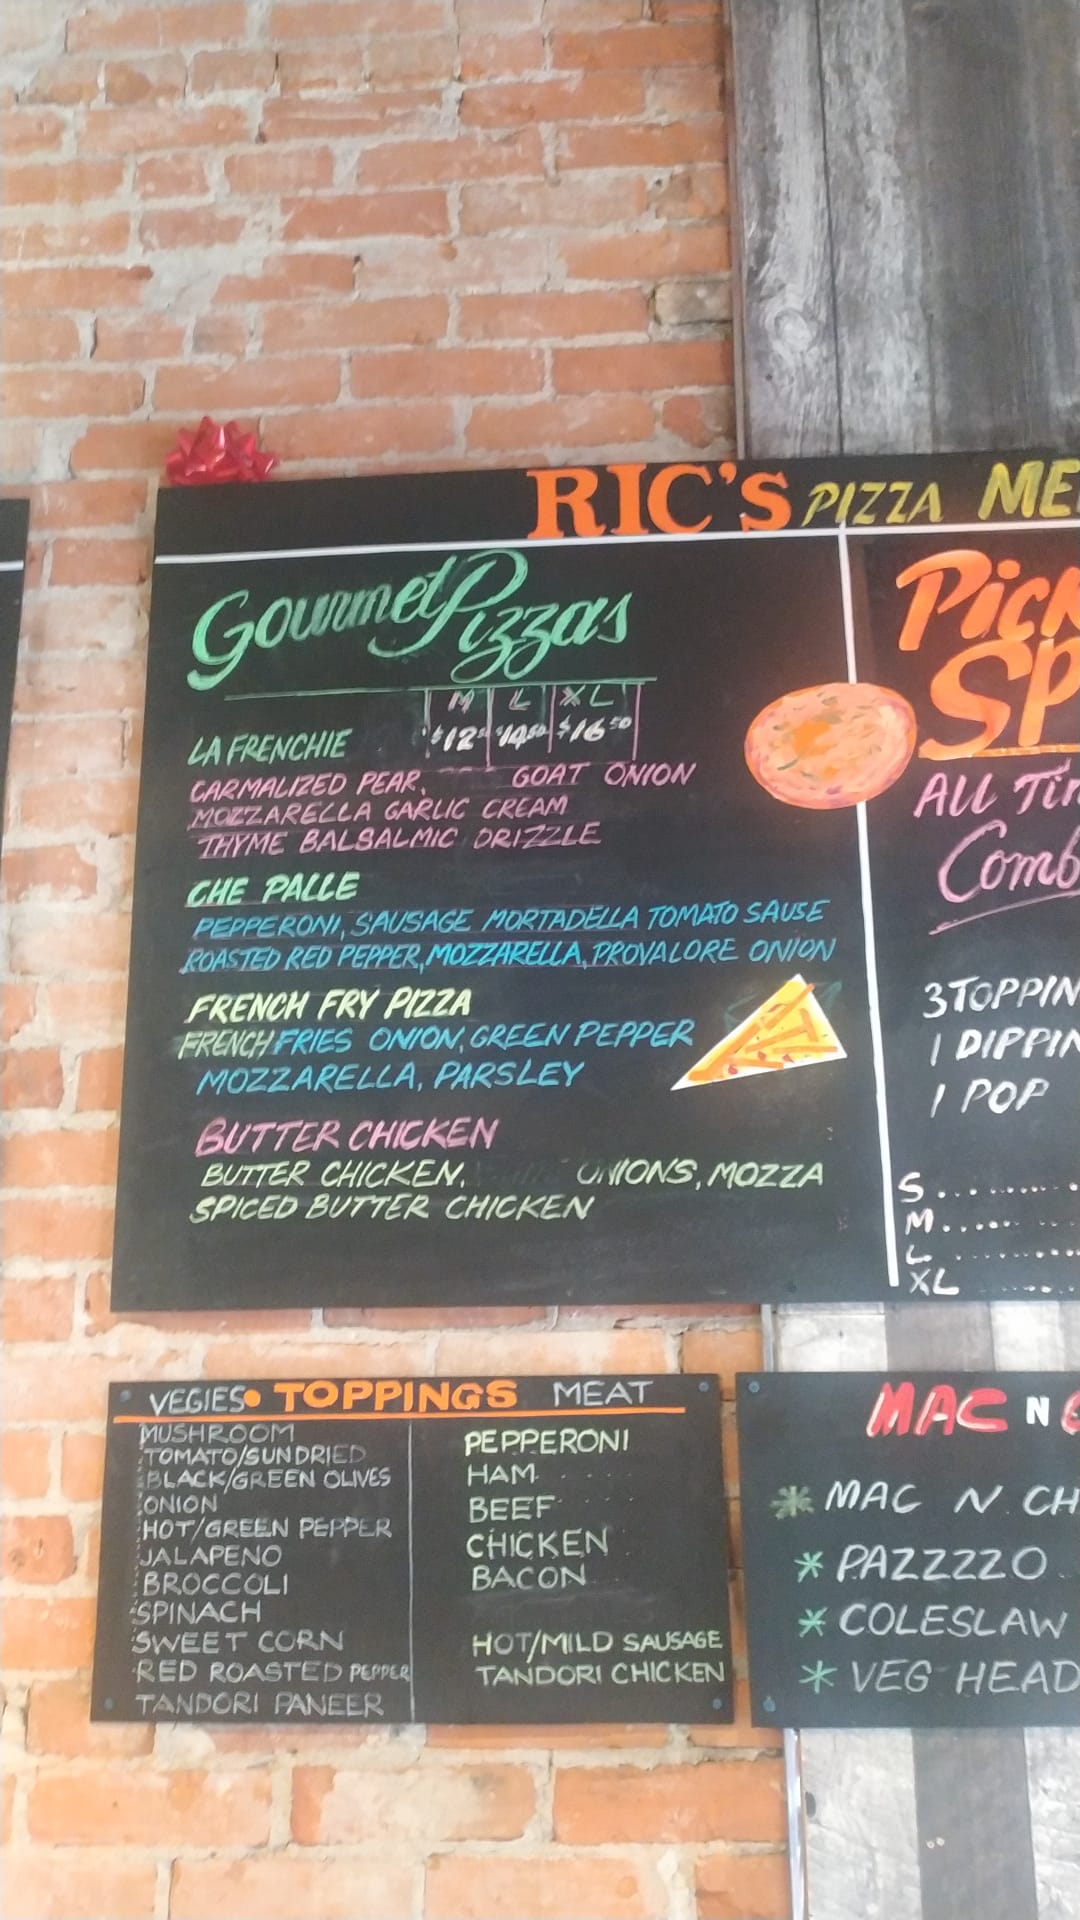 RIC'S PIZZA ME
Gourmet Pizzas
M L XL
LA FRENCHIE $12 $16.50
CARMALIZED PEAR, GOAT ONION
MOZZARELLA GARLIC CREAM
THYME BALSALMIC DRIZZLE
CHE PALLE
PEPPERONI, SAUSAGE MORTADELLA TOMATO SAUSE
ROASTED RED PEPPER, MOZZARELLA, PROVALORE ONION
FRENCH FRY PIZZA
FRENCH FRIES ONION, GREEN PEPPER
MOZZARELLA, PARSLEY
BUTTER CHICKEN
BUTTER CHICKEN, ONIONS, MOZZA
SPICED BUTTER CHICKEN
Pick
SP
ALL Tim
Comb
3 TOPPIN
1 DIPPIN
1 POP
S ..........
M ..........
L ..........
XL ..........
VEGIES • TOPPINGS MEAT
MUSHROOM
TOMATO/SUNDRIED
BLACK/GREEN OLIVES
ONION
HOT/GREEN PEPPER
JALAPENO
BROCCOLI
SPINACH
SWEET CORN
RED ROASTED PEPPER
TANDORI PANEER
PEPPERONI
HAM
BEEF
CHICKEN
BACON
HOT/MILD SAUSAGE
TANDORI CHICKEN
MAC N C
* MAC N CH
* PAZZZZO
* COLESLAW
* VEG HEAD